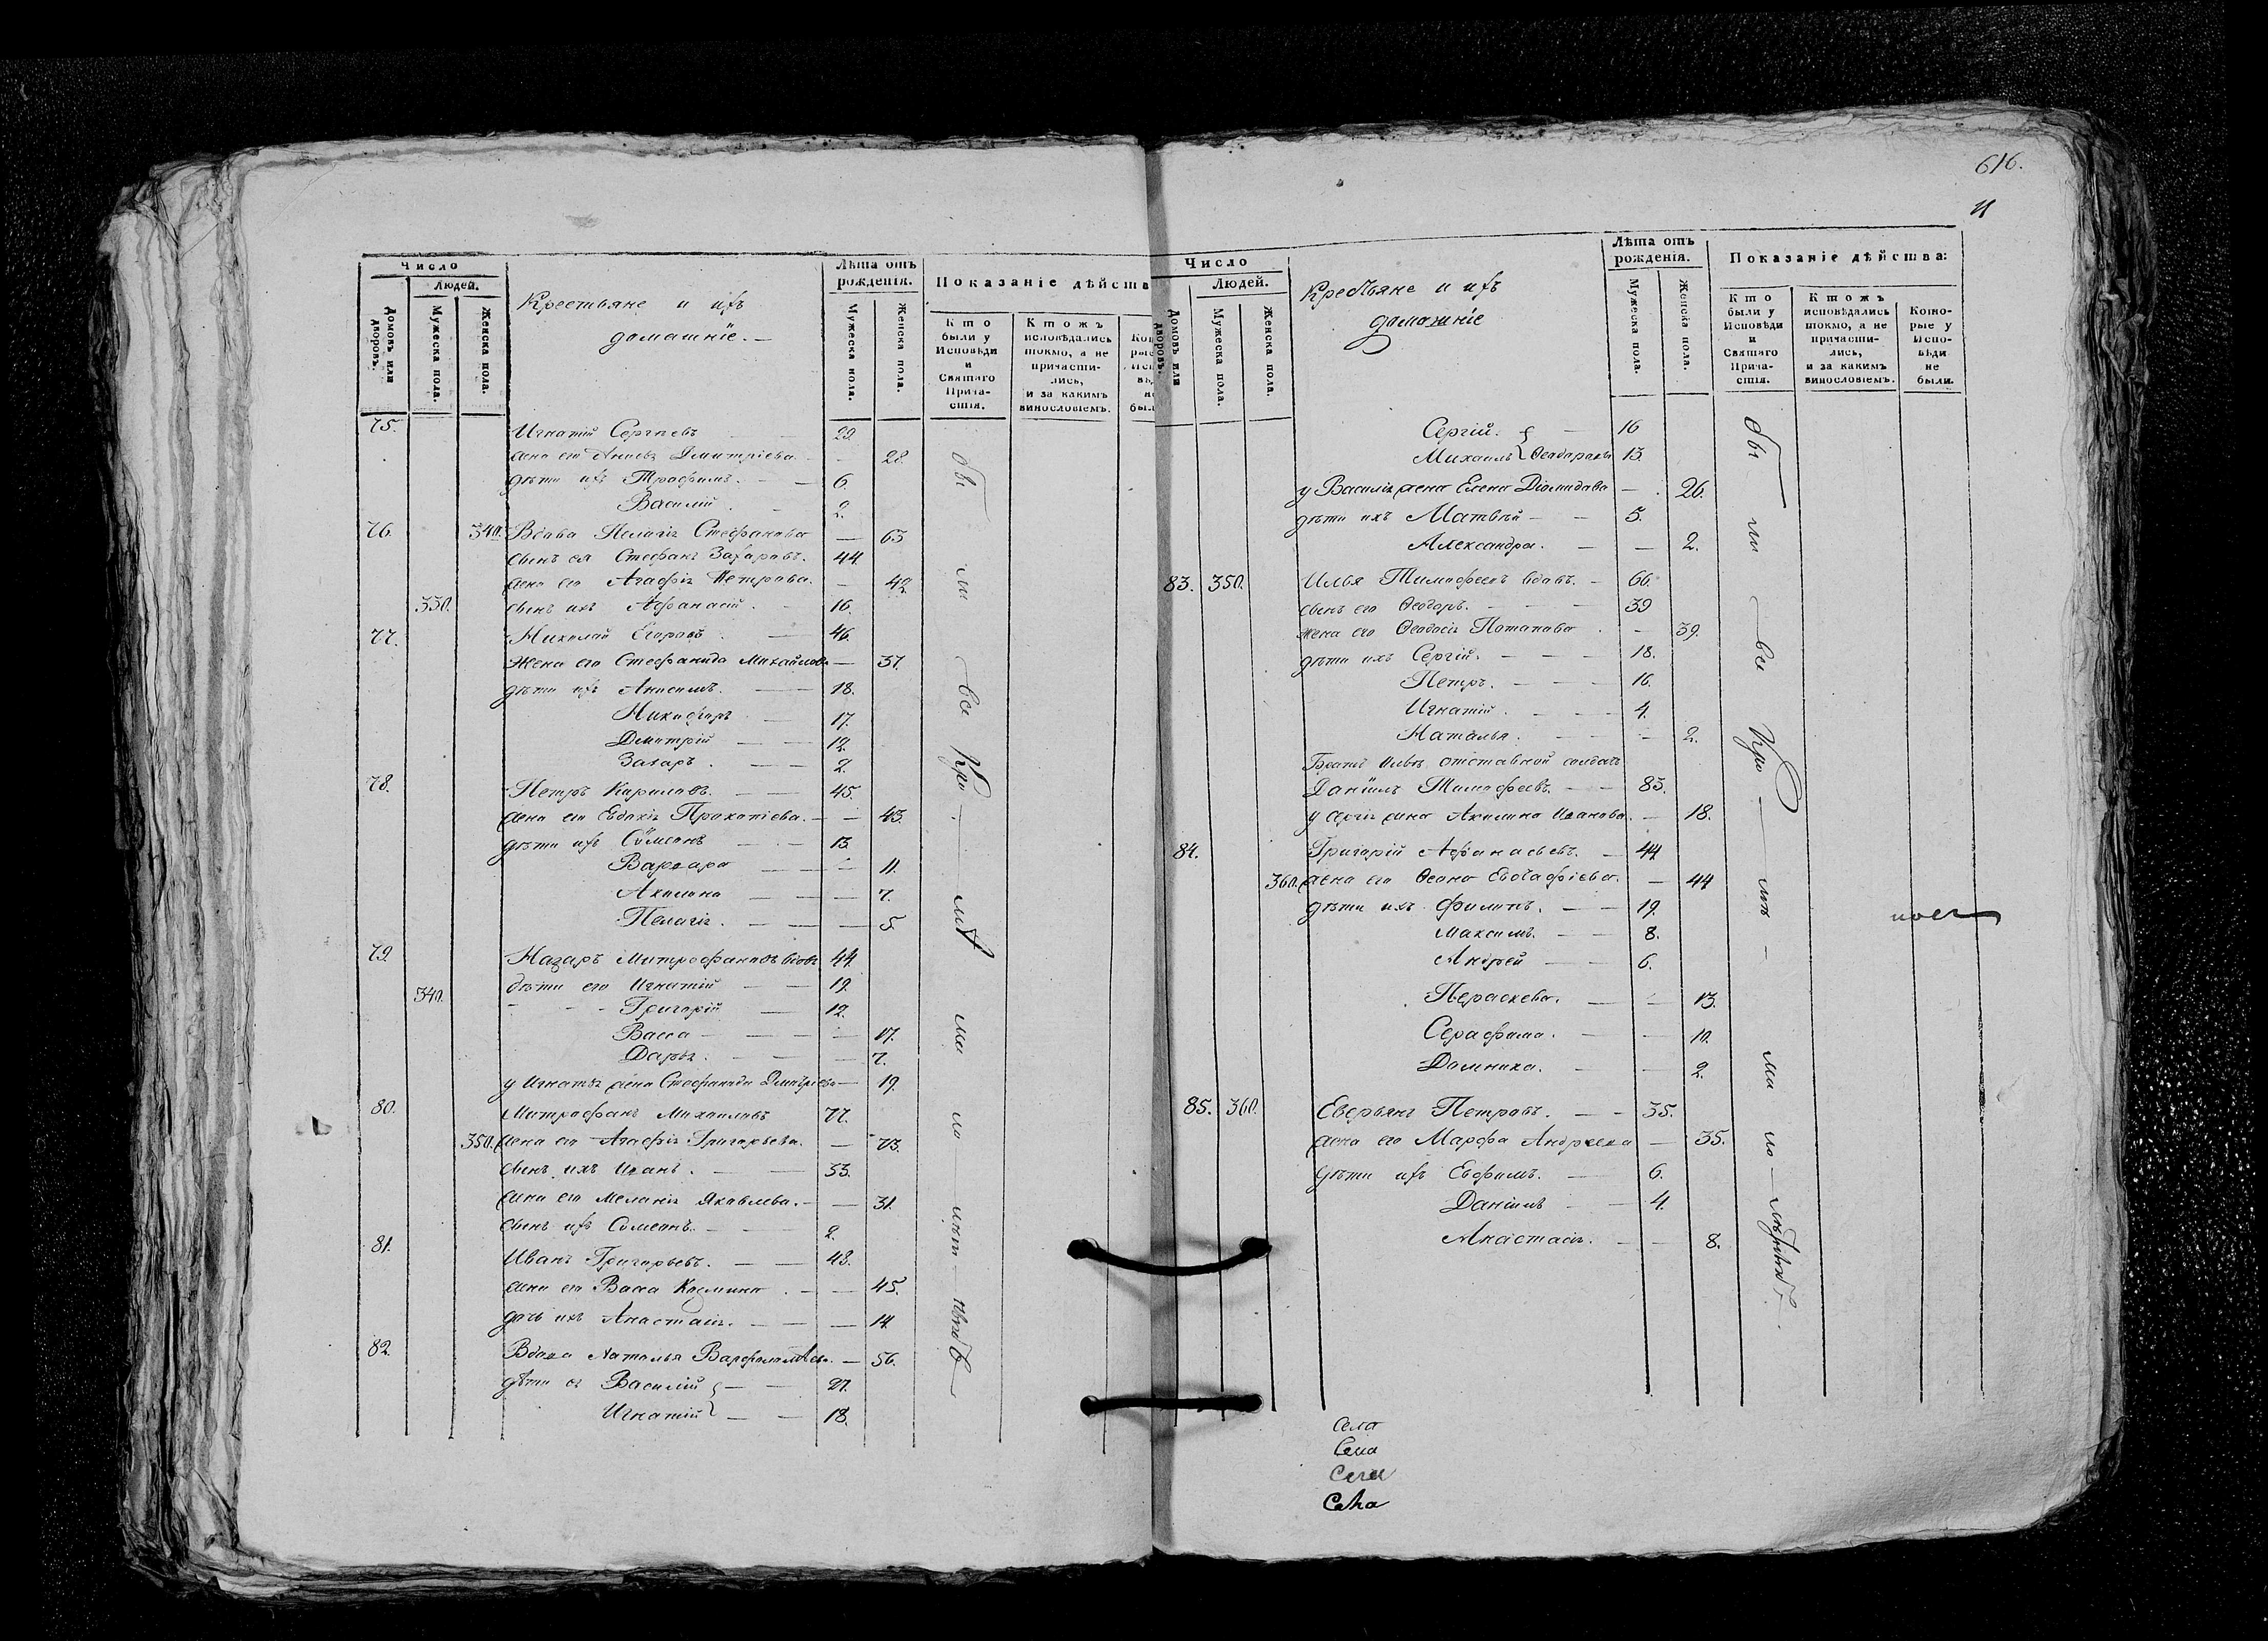 616.
11
Число
Людей.
Домовъ или дворовъ.
Мужеска пола.
Женска пола.
Крестьяне и ихъ
домашніе. —
Лѣта отъ
рожденія.
Мужеска пола.
Женска пола.
Показаніе дѣйства
Кто были у Исповѣди и Святаго Причастія.
Ктожъ исповѣдались токмо, а не причастились, и за какимъ винословіемъ.
75. Игнатій Сергѣевъ 29.
жена его Дмитріева — 28.
дѣти ихъ Трофимъ. — 6.
Василій. — 2.
76. 340. Вдова Пелагія Стефанова — 63
сынъ ея Стефанъ Захаровъ. 44
жена его Агафія Петрова. — 42
330. сынъ ихъ Афанасій. — 16.
77. Николай Егоровъ — 46.
жена его Стефанида Михайлова — 37.
дѣти ихъ Анисимъ. — 18.
Никифоръ — 17.
Дмитрій — 12.
Захаръ. — 2.
78. Петръ Кариловъ. — 45.
жена его Евдокія Прокопіева. — 43.
дѣти ихъ Сѵмеонъ — 13.
Варвара — 11.
Акилина — 7.
Пелагія. — 5.
79. Назаръ Митрофановъ вдовъ 44.
340. дѣти его Игнатій — 19.
Григорій — 12.
Васса — 17.
Дарья. — 7.
у Игнатья жена Стефанида Дмитріева — 19.
80. Митрофанъ Михаиловъ 77.
350. жена его Агафія Григорьева. — 73.
сынъ ихъ Иванъ. — 53.
жена его Меланія Яковлева. — 31.
сынъ ихъ Сѵмеонъ. — 2.
81. Иванъ Григорьевъ. — 48.
жена его Васса Козмина. — 45.
дочь ихъ Анастасія. — 14
82. Вдова Наталья Варфоломѣева. — 56.
дѣти ея Василій — 27.
Игнатій — 18.
Число
Людей.
Домовъ или дворовъ.
Мужеска пола.
Женска пола.
Крестьяне и ихъ
домашніе
Лѣта отъ
рожденія.
Мужеска пола.
Женска пола.
Показаніе дѣйства:
Кто были у Исповѣди и Святаго Причастія.
Ктожъ исповѣдались токмо, а не причастились, и за какимъ винословіемъ.
Которые у Исповѣди не были.
Сергій. — 16
Михаилъ Ѳеодоровы 13.
у Василія жена Елена Діомидова — 26.
дѣти ихъ Матвѣй — 5.
Александра. — 2.
83. 350. Илья Тимофеевъ вдовъ. — 66.
сынъ его Ѳеодоръ. — 39
жена его Ѳеодосія Потапова. — 39.
дѣти ихъ Сергій. — 18.
Петръ. — 16.
Игнатій. — 4.
Наталья. — 2.
Братъ Ильи отставной солдатъ
Даніилъ Тимофеевъ. — 83.
у Сергія жена Акилина Иванова. — 18.
84. Григорій Афанасьевъ. — 44
360. жена его — 44
дѣти ихъ Филипъ. — 19.
Максимъ. — 8.
Андрей — 6.
Параскева. — 13.
Серафима. — 10.
Домника. — 2.
85. 360. Еверьянъ Петровъ. — 35.
жена его Марфа Андреева — 35.
дѣти ихъ Евфимъ. — 6.
Даніилъ — 4.
Анастасія. — 8.
Села
Села